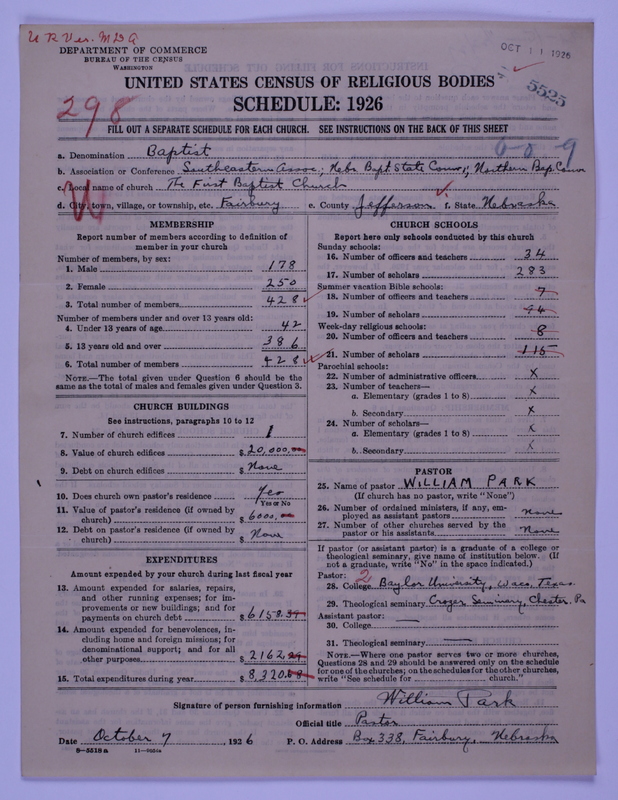 U R Ver. M D A
OCT 11 1926
DEPARTMENT OF COMMERCE
BUREAU OF THE CENSUS
WASHINGTON
5525
UNITED STATES CENSUS OF RELIGIOUS BODIES
SCHEDULE: 1926
298
FILL OUT A SEPARATE SCHEDULE FOR EACH CHURCH. SEE INSTRUCTIONS ON THE BACK OF THIS SHEET
a. Denomination Baptist
b. Association or Conference Southeastern Assoc; Nebr Bapt State Conv; Northern Bap. Conv
c. Local name of church The First Baptist Church
d. City, town, village, or township, etc. Fairbury e. County Jefferson f. State Nebraska
MEMBERSHIP
Report number of members according to definition of
member in your church
Number of members, by sex:
1. Male 178
2. Female 250
3. Total number of members 428
Number of members under and over 13 years old:
4. Under 13 years of age 42
5. 13 years old and over 386
6. Total number of members 428
NOTE.—The total given under Question 6 should be the
same as the total of males and females given under Question 3.
CHURCH BUILDINGS
See instructions, paragraphs 10 to 12
7. Number of church edifices 1
8. Value of church edifices $ 20,000.00
9. Debt on church edifices $ None
10. Does church own pastor's residence Yes
Yes or No
11. Value of pastor's residence (if owned by
church) $ 6000.00
12. Debt on pastor's residence (if owned by
church) $ None
EXPENDITURES
Amount expended by your church during last fiscal year
13. Amount expended for salaries, repairs,
and other running expenses; for im-
provements or new buildings; and for
payments on church debt $ 6158.39
14. Amount expended for benevolences, in-
cluding home and foreign missions; for
denominational support; and for all
other purposes $ 2162.29
15. Total expenditures during year $ 8,320.68
CHURCH SCHOOLS
Report here only schools conducted by this church
Sunday schools:
16. Number of officers and teachers 34
17. Number of scholars 283
Summer vacation Bible schools:
18. Number of officers and teachers 7
19. Number of scholars 94
Week-day religious schools:
20. Number of officers and teachers 8
21. Number of scholars 115
Parochial schools:
22. Number of administrative officers x
23. Number of teachers—
a. Elementary (grades 1 to 8) x
b. Secondary x
24. Number of scholars—
a. Elementary (grades 1 to 8) x
b. Secondary x
PASTOR
25. Name of pastor WILLIAM PARK
(If church has no pastor, write "None")
26. Number of ordained ministers, if any, em-
ployed as assistant pastors none
27. Number of other churches served by the
pastor or his assistants None
If pastor (or assistant pastor) is a graduate of a college or
theological seminary, give name of institution below. (If
not a graduate, write "No" in the space indicated.)
Pastor: 2
28. College Baylor University, Waco, Texas.
29. Theological seminary Crozer Seminary, Chester, Pa
Assistant pastor:
30. College —
31. Theological seminary —
NOTE.—Where one pastor serves two or more churches,
Questions 28 and 29 should be answered only on the schedule
for one of the churches; on the schedules for the other churches,
write "See schedule for church."
Signature of person furnishing information William Park
Official title Pastor
Date October 7, 1926 P. O. Address Box 338, Fairbury, Nebraska
8-5518 a